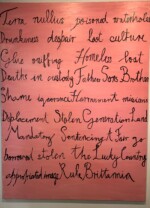 Terra nullius personal watercolor
Drunkeness despair lost culture
Glue sniffing Homeless boat
Deaths in custody Father Sons Brother
Shame ignorance Harrassment missions
Displacement Stolen Generation Land
Mandatory Sentencing A Fair go
stolen the Lucky Country
appropriated image Rule Britannia